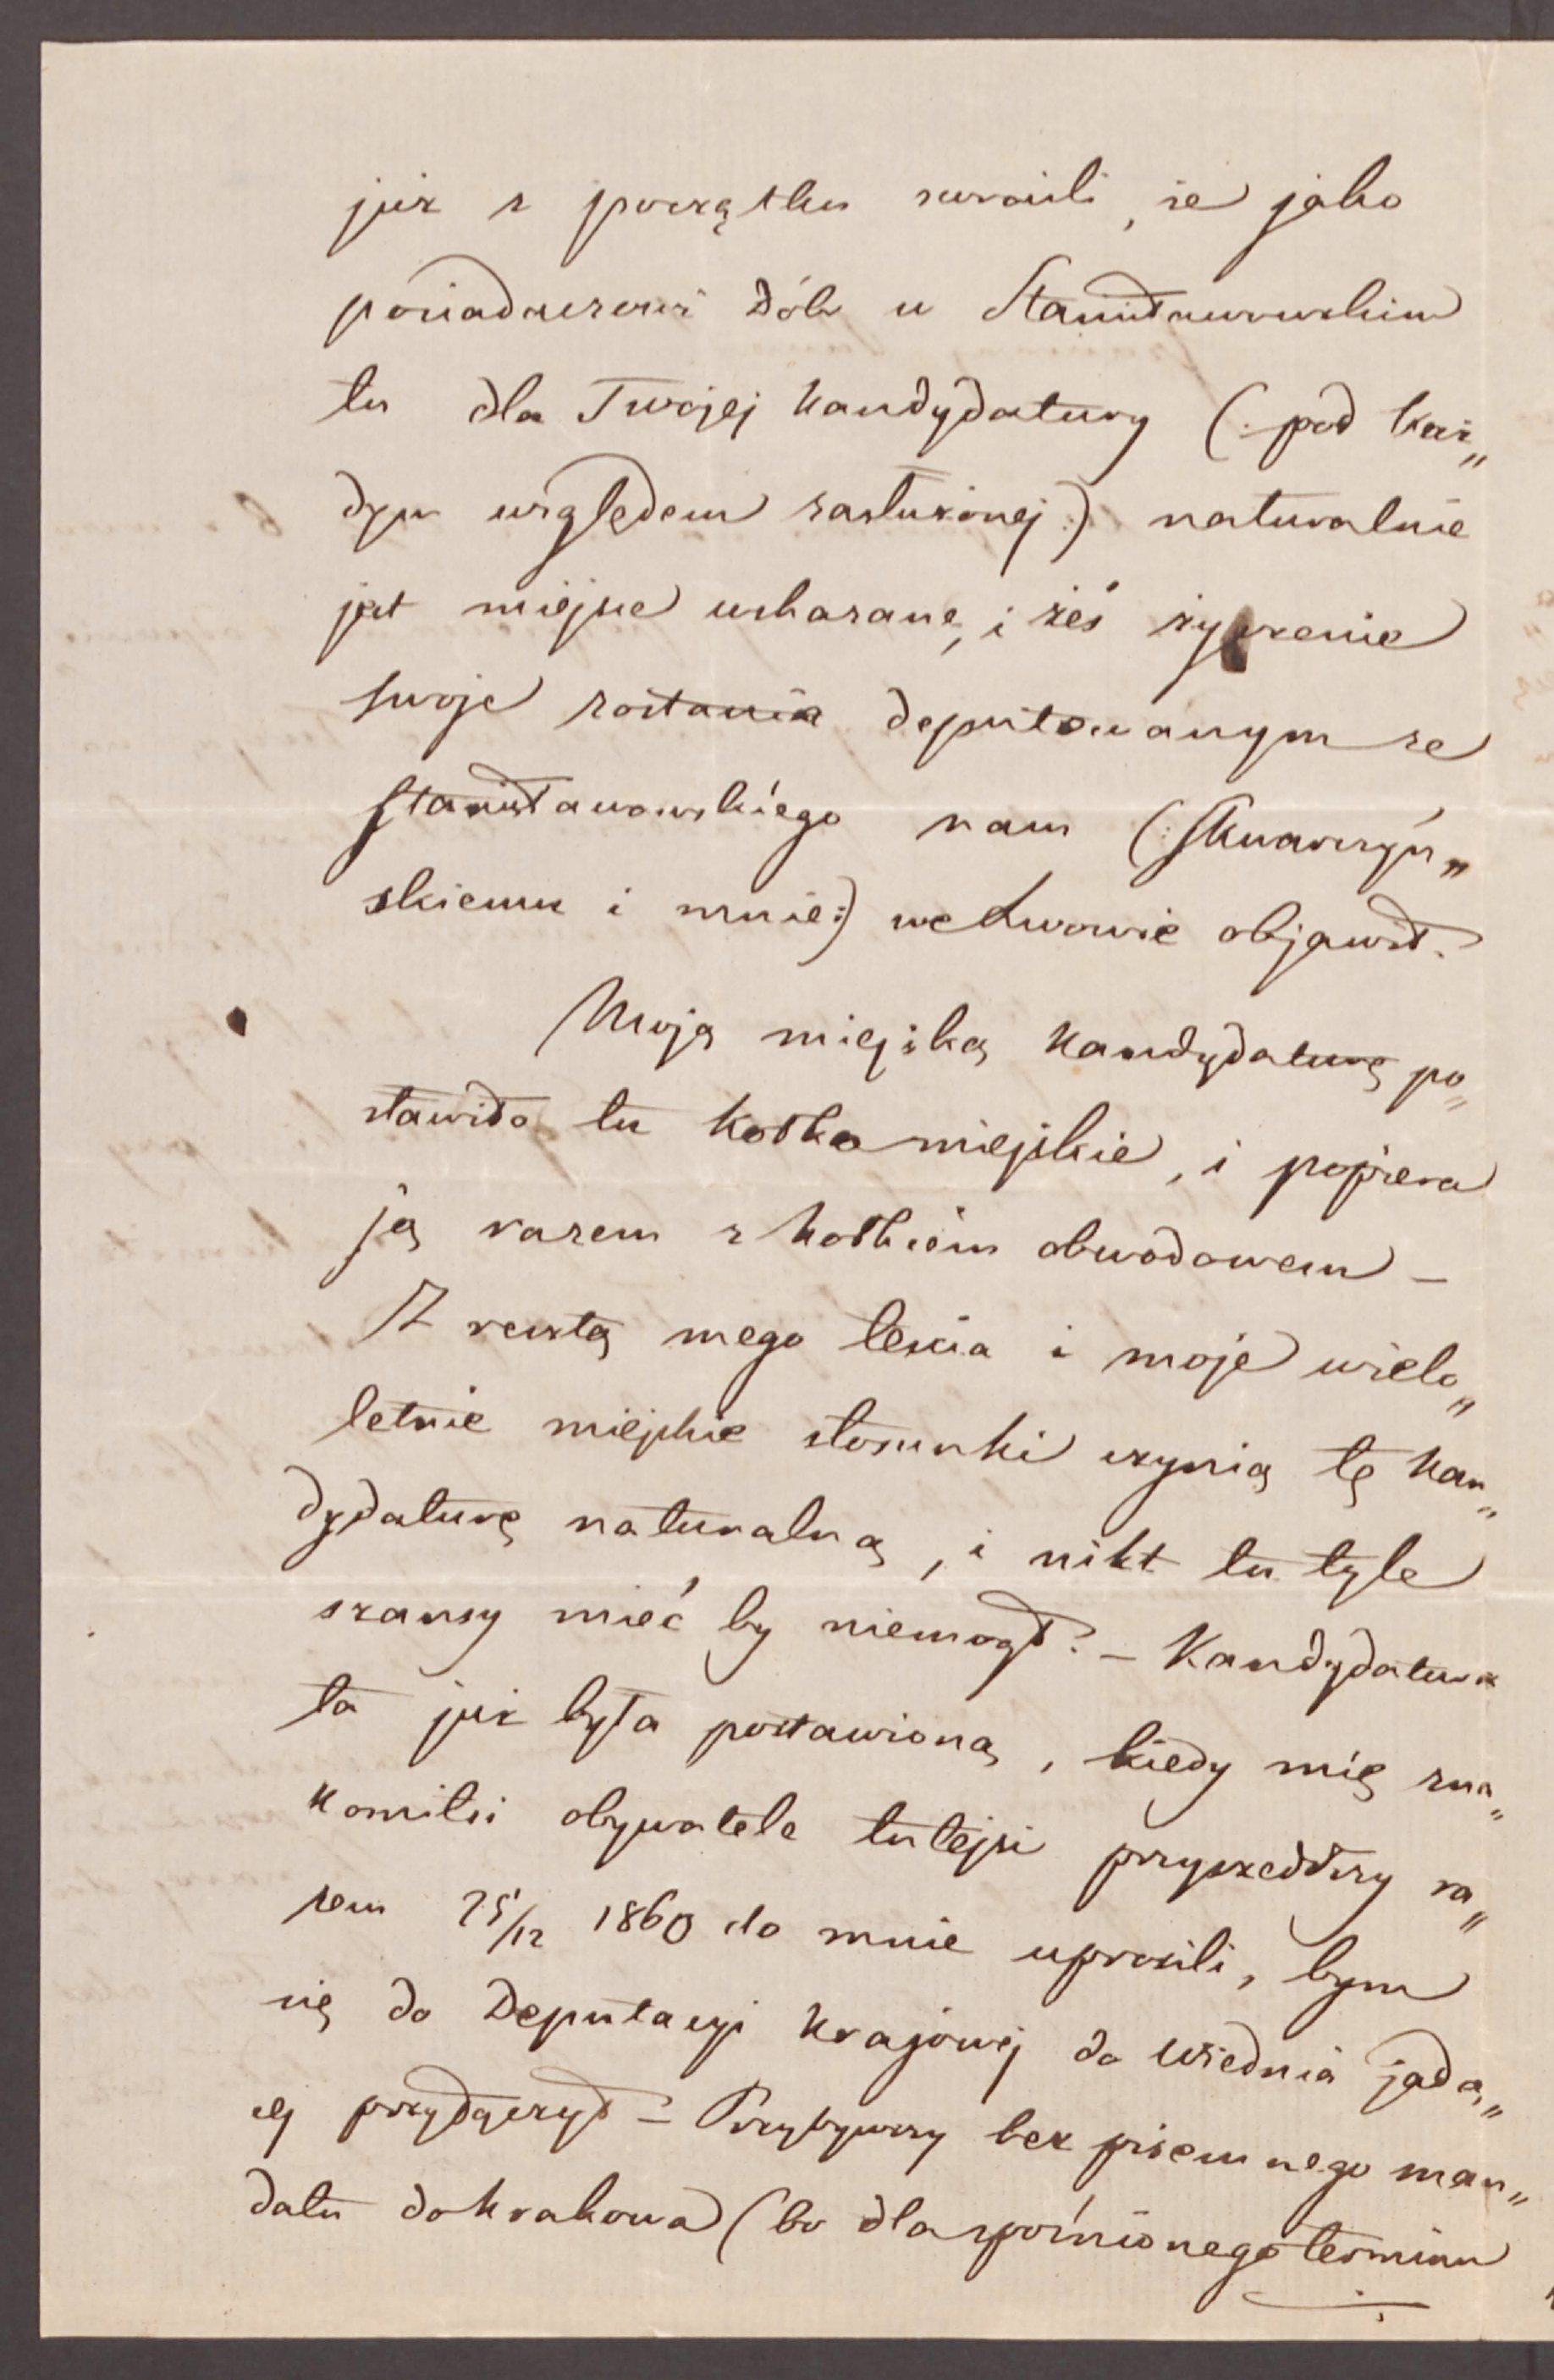 już z początku zwrócili, że jako
posiadaczowi dób w Stanisławowskim
tu dla Twojej kandydatury (: pod każ„
dym względem zasłużonej :) naturalnie
jest miejsce wskazane, i żeś życzenie
swoje zostania deputowanym ze
Stanisławowskiego nam (: Skwarczyń„
skiemu i mnie :) we Lwowie objawił.
Moją miejską kandydaturę po„
stawiło tu kółko miejskie, i popiera
ją razem z kółkiem obwodowem –
Z resztą mego teścia i moje wielo„
letnie miejskie stosunki czynią tę kan„
dydaturę naturalną, i nikt tu tyle
szansy mieć by niemógł. – Kandydatura
ta już była postawioną, kiedy mię zna„
komitsi obywatele tutejsi przyszedłszy ra„
zem 25/12 1860 do mnie uprosili, bym
się do Deputacyi krajowej do Wiednia jadą„
cej przyłączył – Przybywszy bez pisemnego man„
datu do Krakowa (bo dla spóźnionego terminu